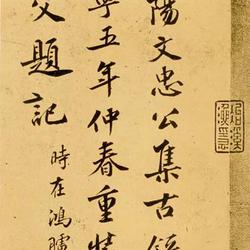 陽文忠公集古
寧五年仲春重裝
父題記
時在鴻臚